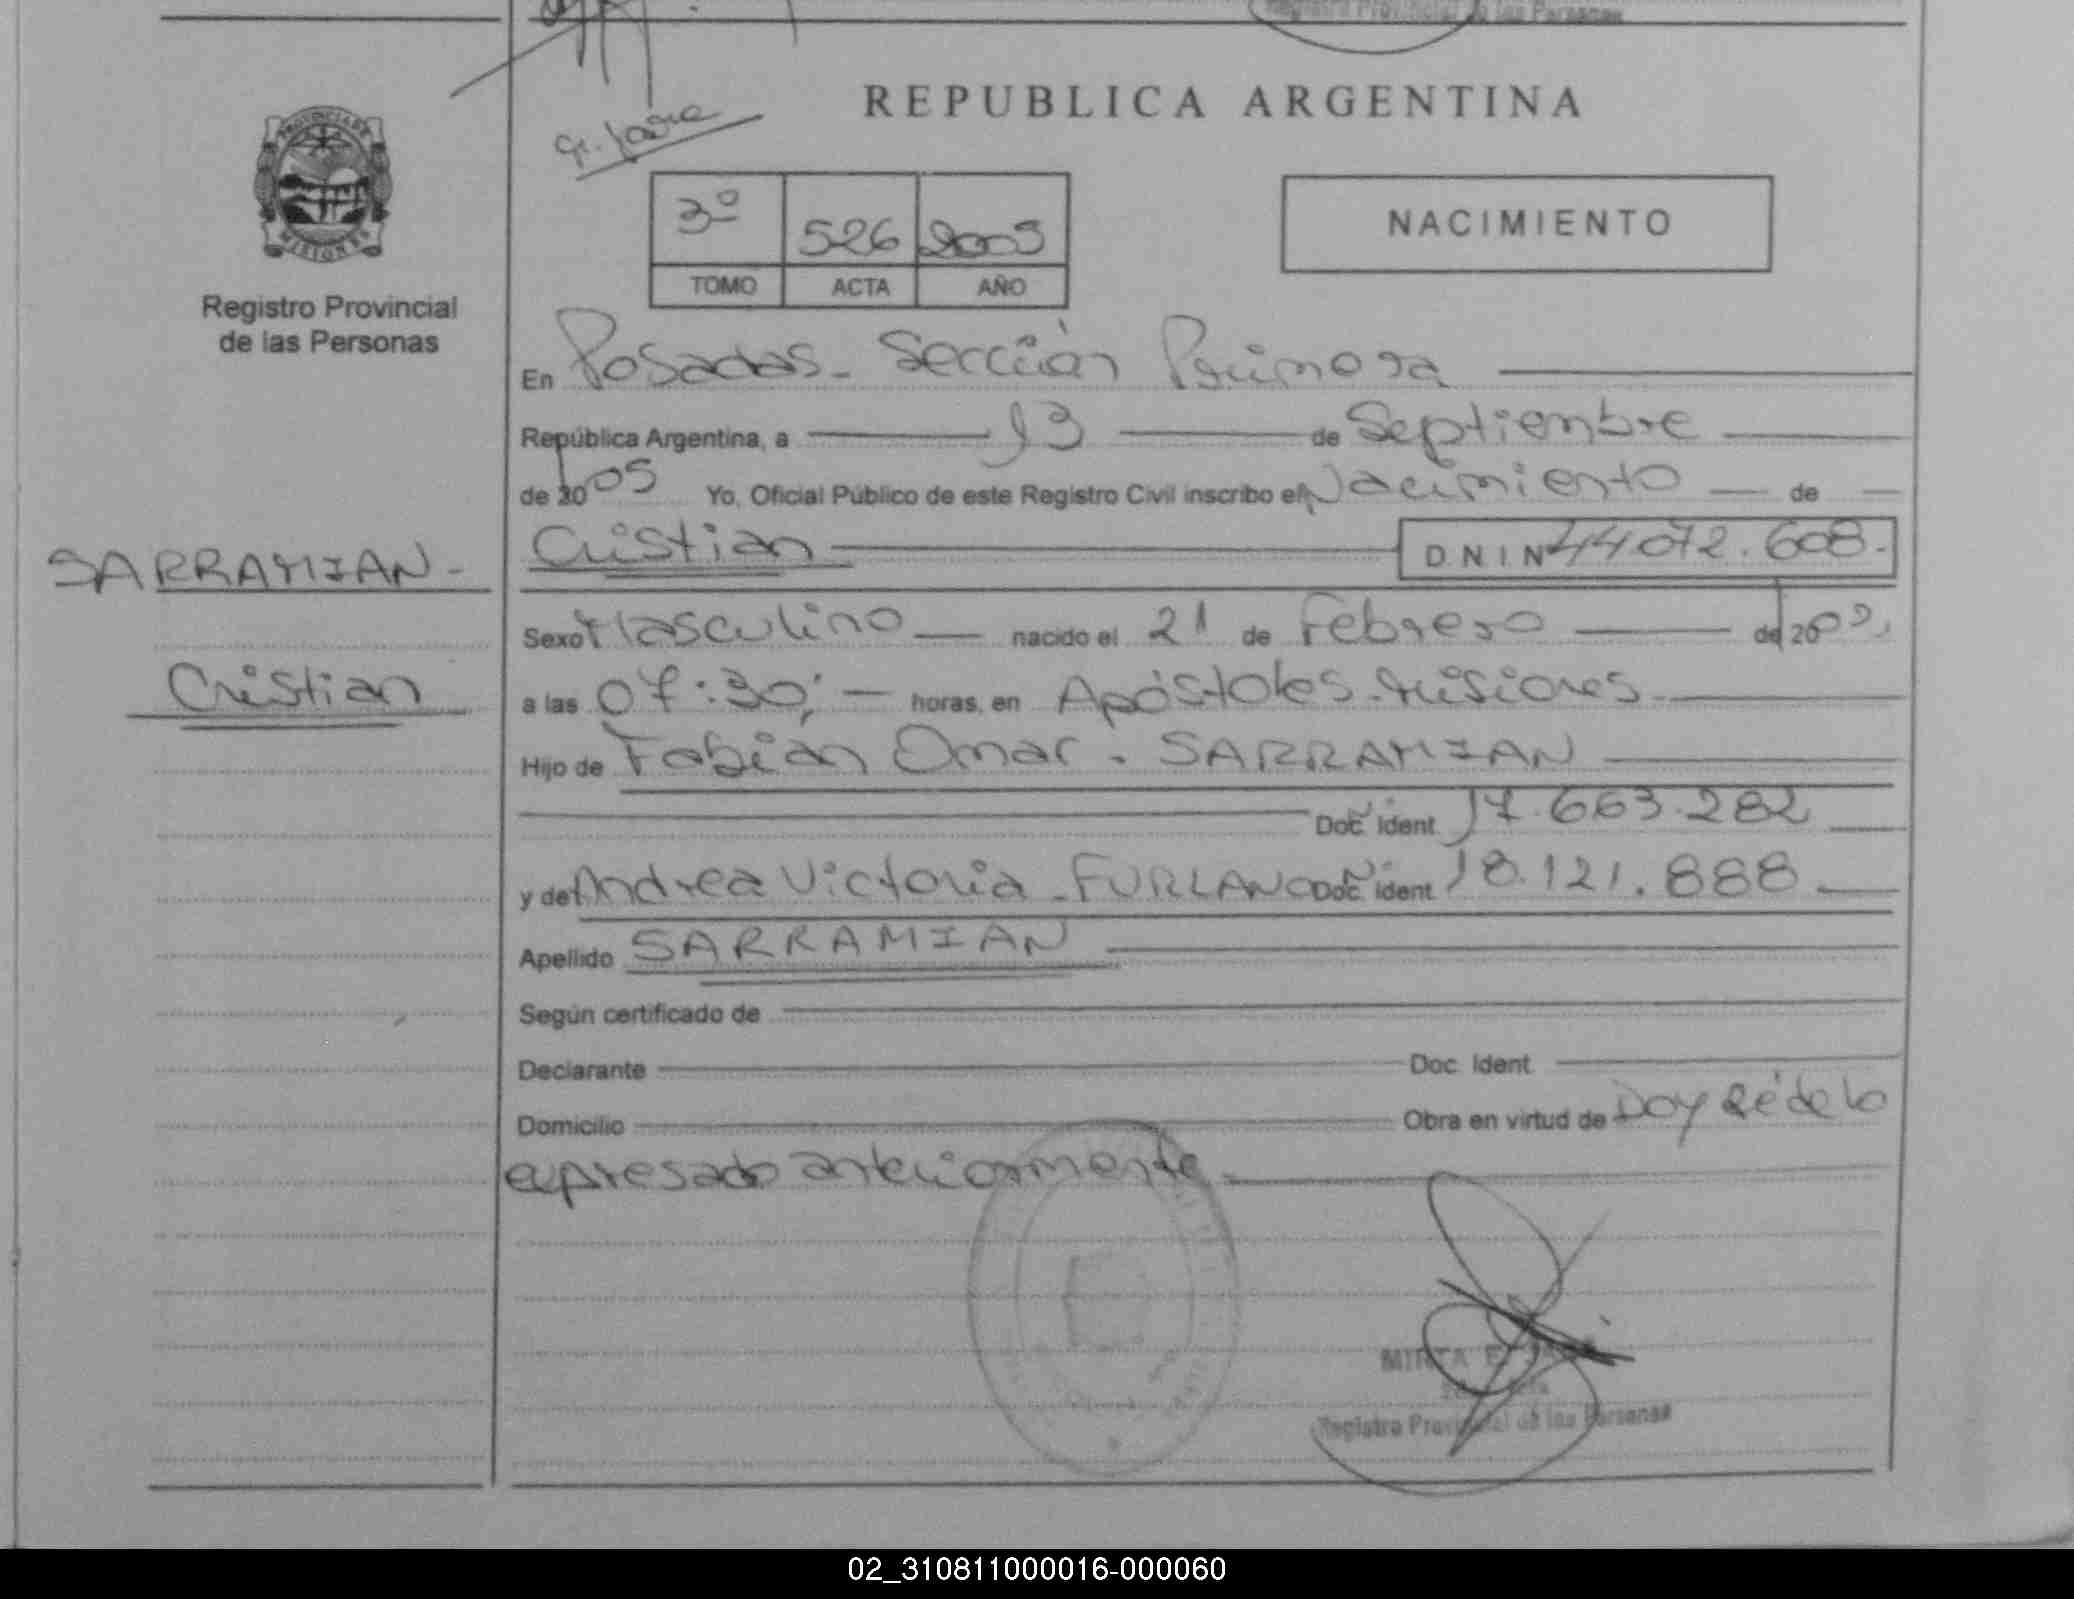 Registro Provincial de las Personas
REPUBLICA ARGENTINA
PROVINCIA DE
MISIONES
Registro Provincial
de las Personas
3º 526 2005
TOMO ACTA AÑO
NACIMIENTO
En Posadas - Sección Primera
República Argentina, a 13 de Septiembre
de 2005 Yo, Oficial Público de este Registro Civil inscribo el Nacimiento de
SARRAMIAN -
Cristian D.N.I.N 44072.608.-
Sexo Masculino nacido el 21 de Febrero de 200
Cristian
a las 07:30; horas, en Apóstoles - Misiones
Hijo de Fabián Omar - SARRAMIAN
Doc. Ident. 17.663.282
y de Andrea Victoria - FURLAN Doc. Ident. 18.121.888
Apellido SARRAMIAN
Según certificado de
Declarante Doc. Ident.
Domicilio Obra en virtud de Doy fé de lo
expresado anteriormente
Registro Provincial de las Personas
02_310811000016-000060